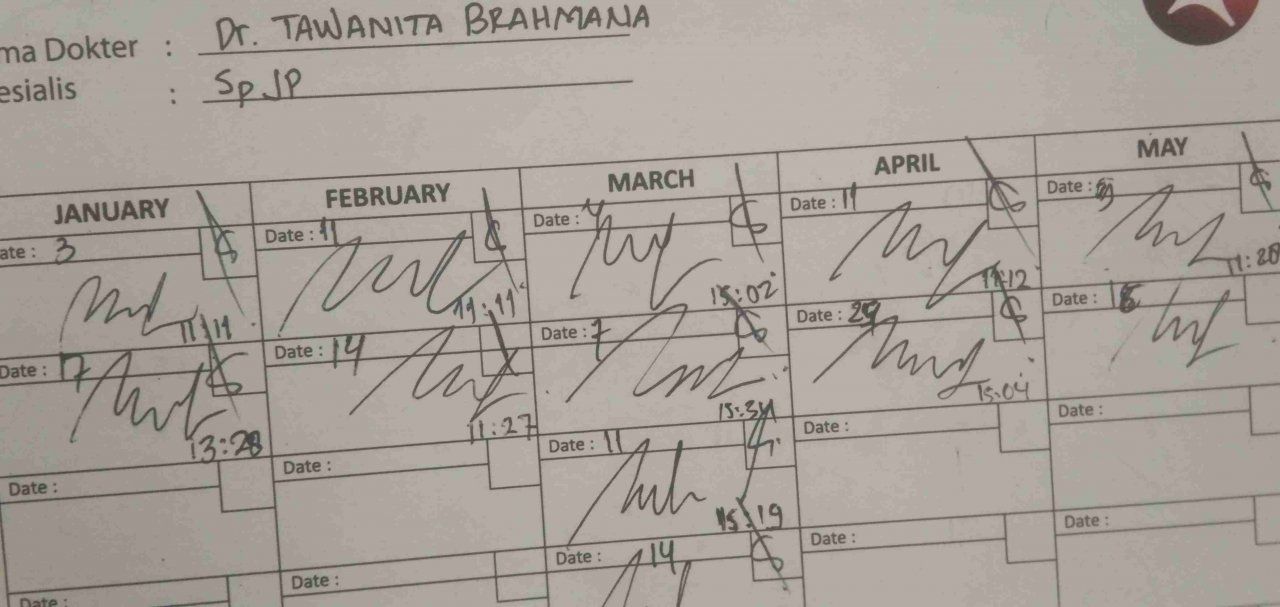 ma Dokter : Dr. TAWANITA BRAHMANA
esialis : Sp JP
JANUARY FEBRUARY MARCH APRIL MAY
ate : 3 Date : 11 Date : 4 Date : 11 Date :
11:11 11:11 15:02 11:12 11:20
Date : 17 Date : 14 Date : 7 Date : 29 Date : 18
13:28 11:27 15:34 15:04
Date : Date : Date : 11 Date : Date :
15:19
Date : Date : Date : 14 Date : Date :